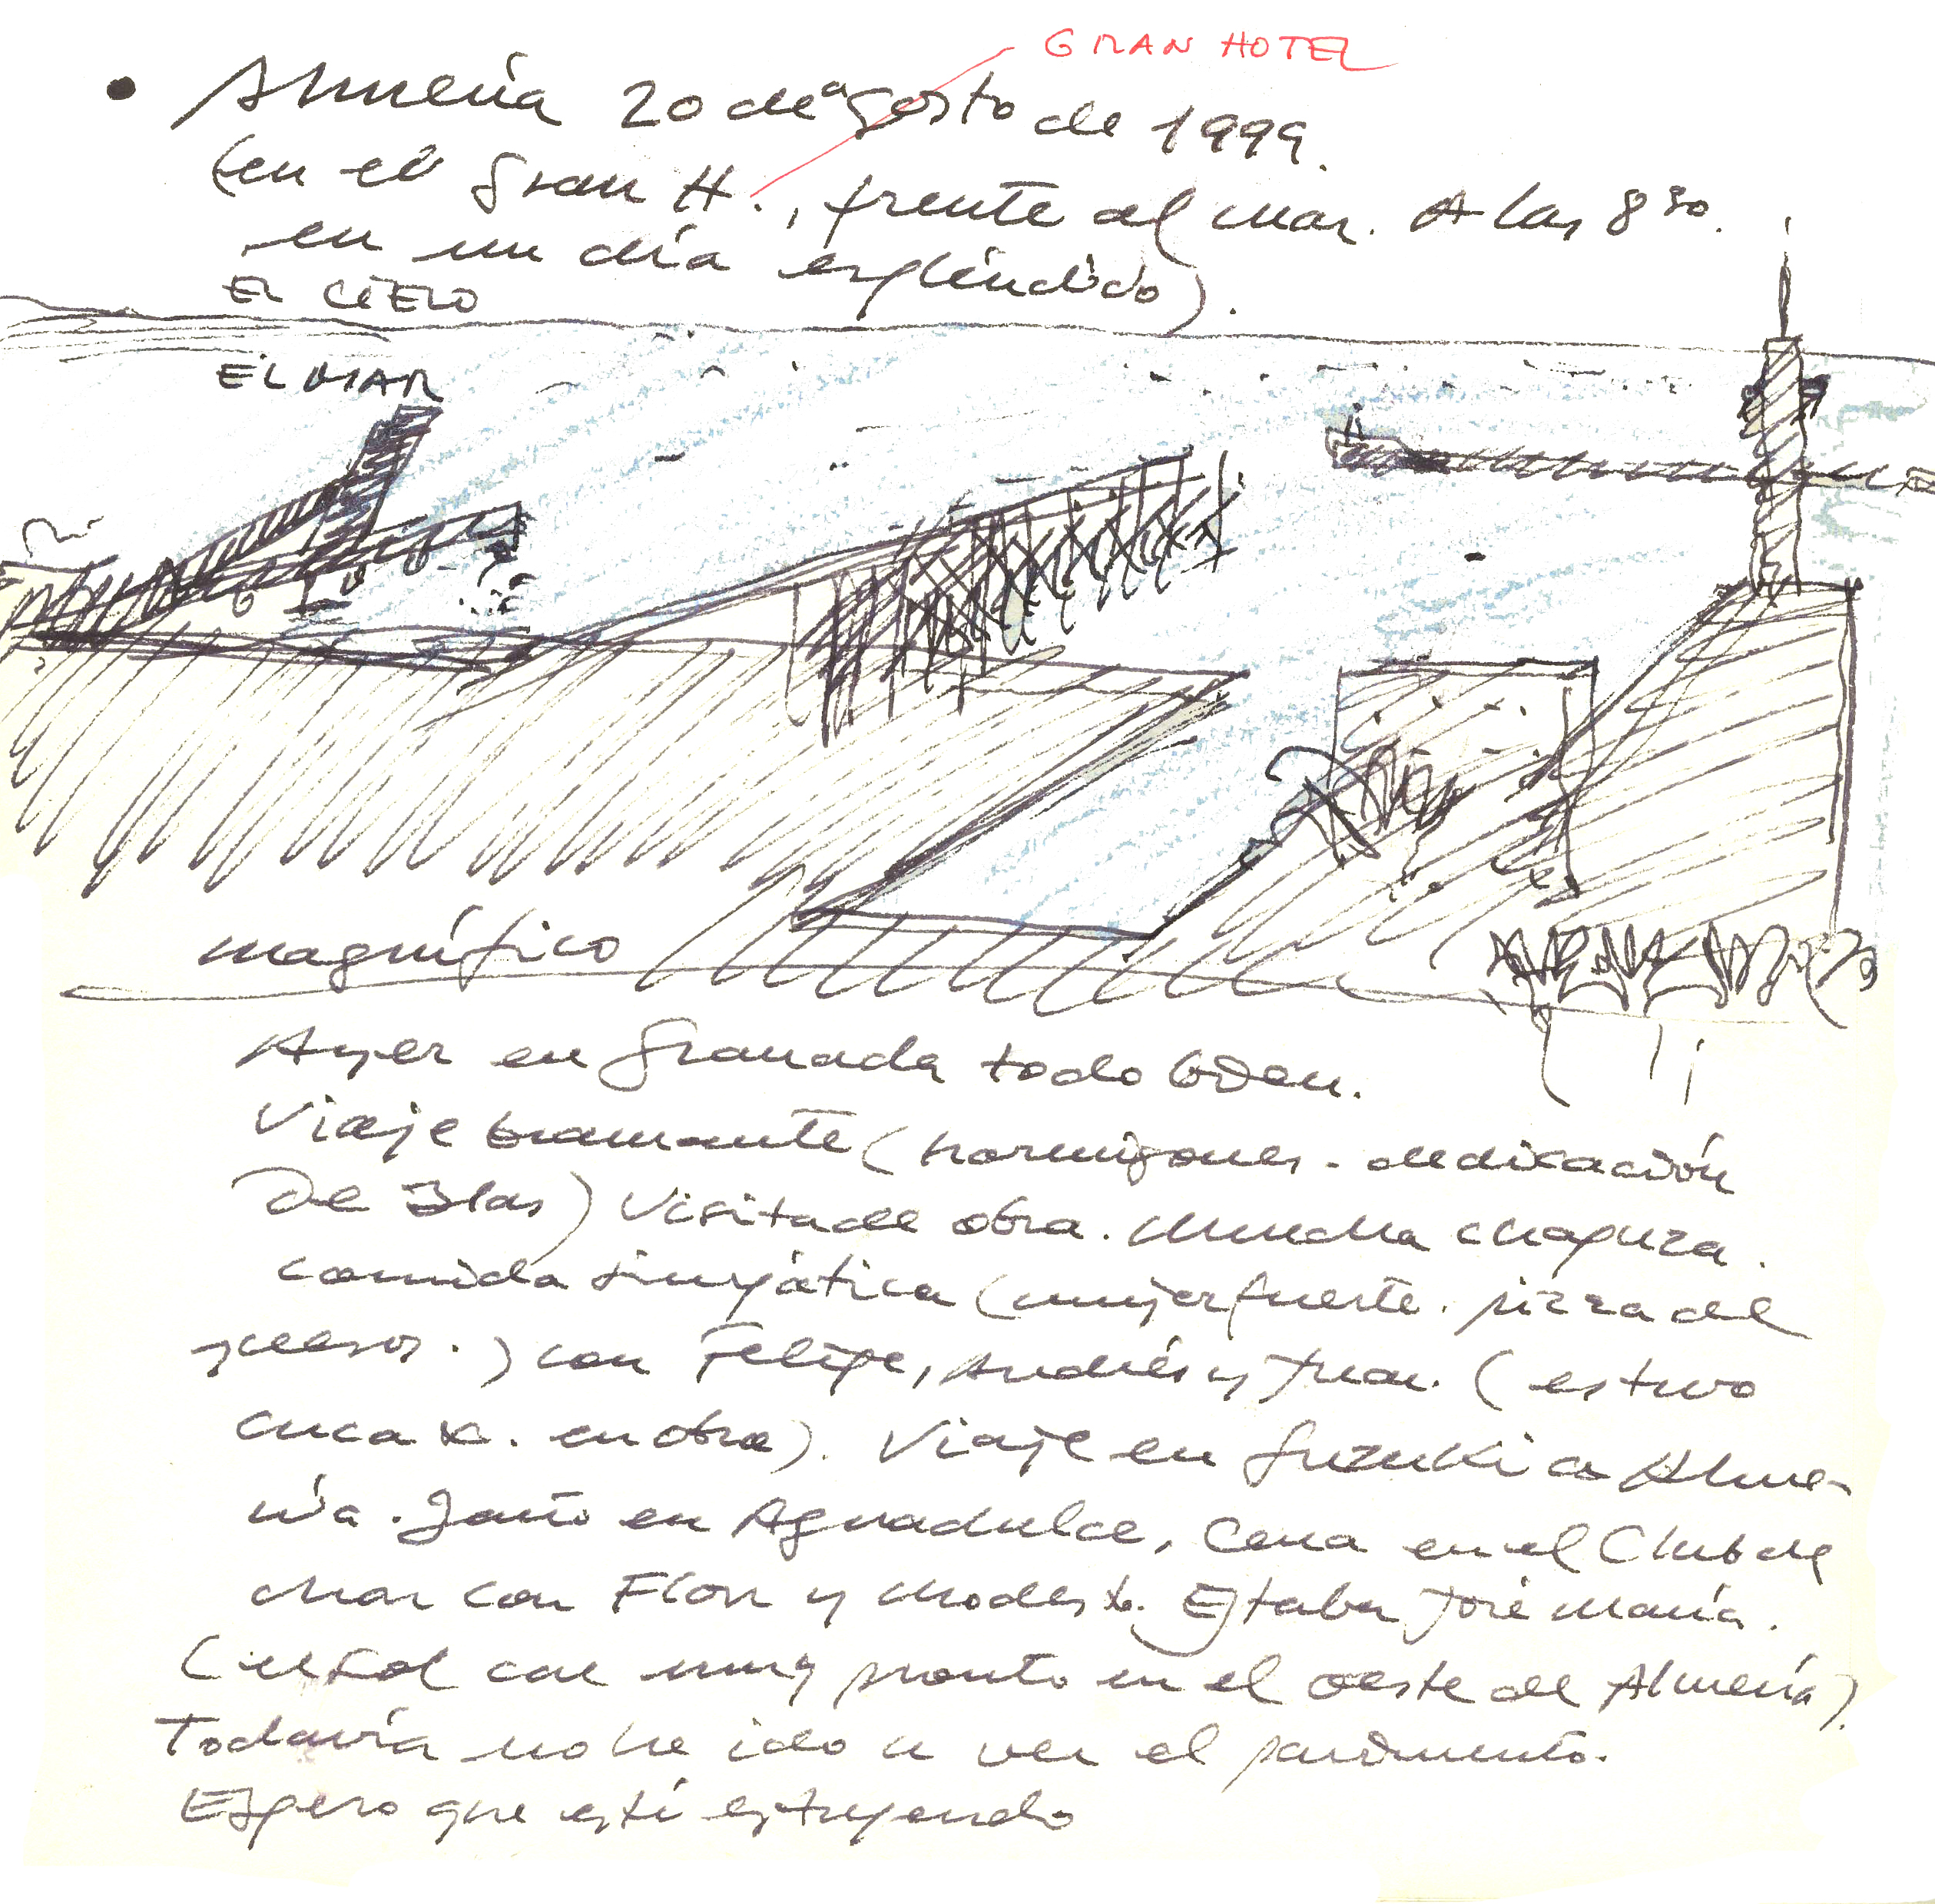 GRAN HOTEL
• Almería 20 de agosto de 1999.
(en el Gran H., frente al mar. A las 8³⁰.
en un día espléndido).
EL CIELO
EL MAR
magnífico
Ayer en Granada todo bien.
Viaje (hormigones. dedicación
De Blas) Visita de obra. Mucha chapuza.
comida simpática (mujer fuerte. pizza de
quesos.) con Felipe, Andrés y Juan. (estuvo
cuca en obra). Viaje en Suzuki a Alme-
ría. Baño en Aguadulce, Cena en el Club de
Mar con Flor y Modesto. Estaba José María.
(el sol cae muy pronto en el oeste de Almería).
Todavía no he ido a ver el pavimento.
Espero que esté estupendo